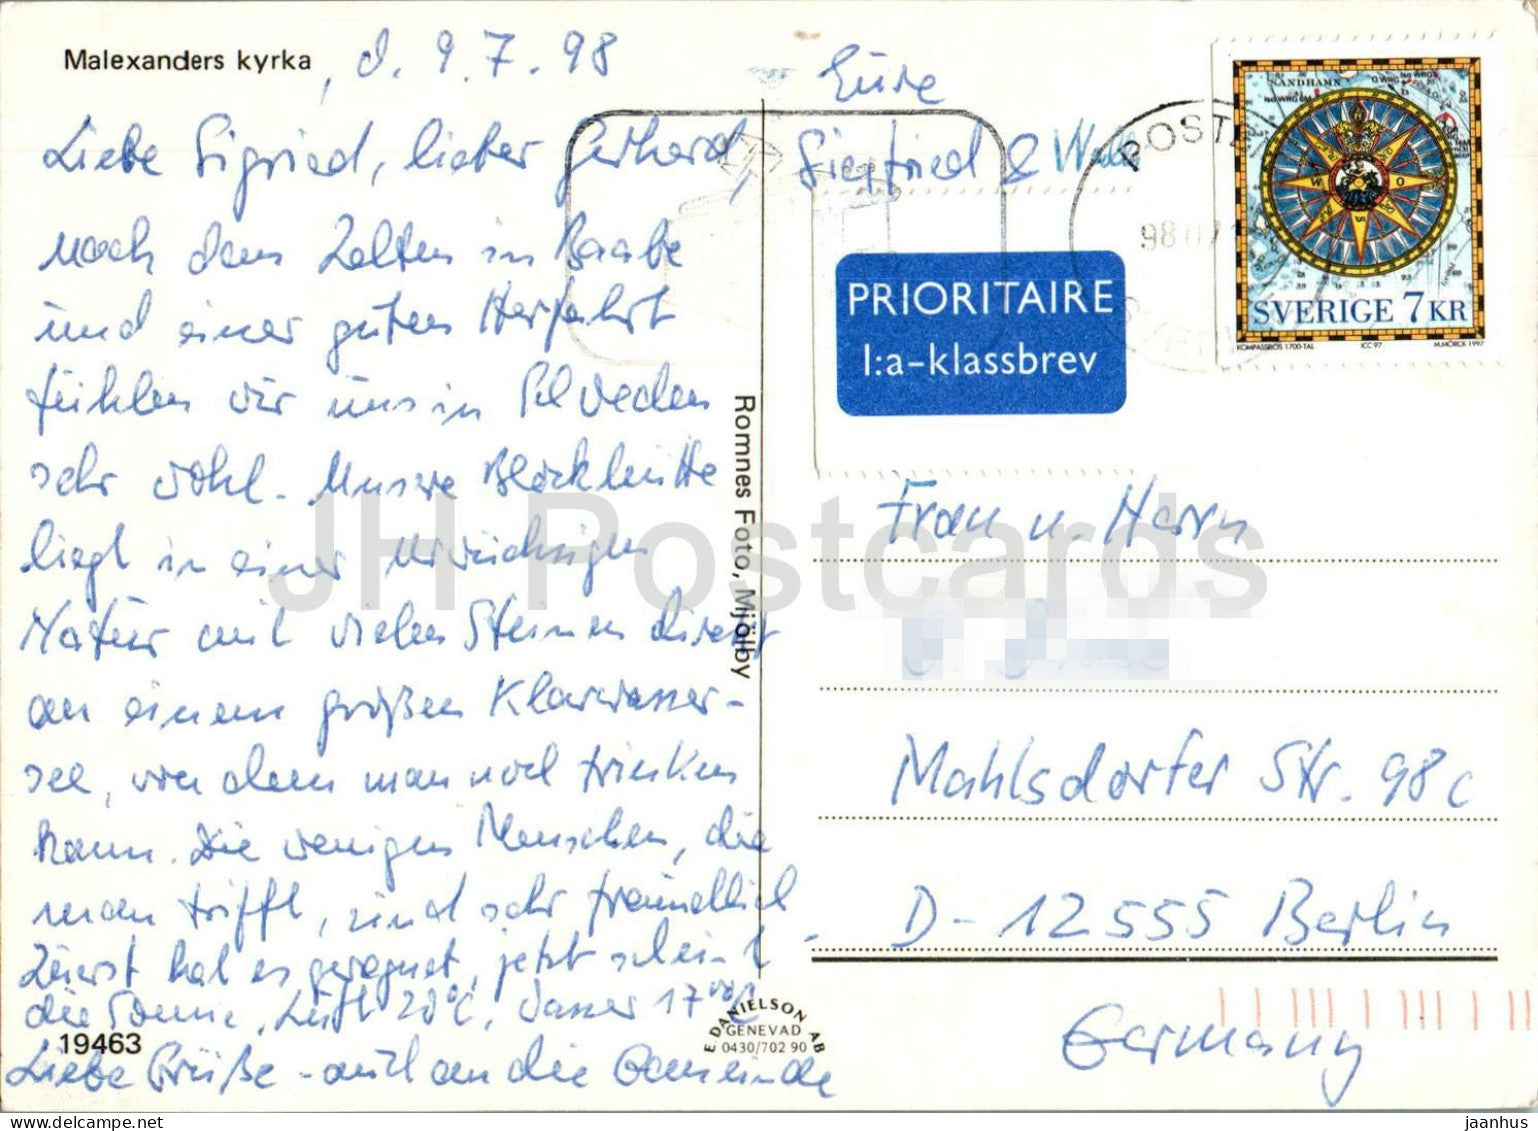 Malexanders kyrka, d. 9.7.98
Liebe Sigried, lieber Gerhard,
noch dem Zelten in Baabe
und einer guten Herfahrt
fühlen wir uns in
sehr wohl. Unsere Blockhütte
liegt in einer urwüchsigen
Natur mit vielen Steinen direkt
an einem großen Klarwasser-
see, von dem man noch trinken
kann. Die wenigen Menschen, die
man trifft, sind sehr freundlich.
Zuerst hat es geregnet, jetzt scheint
die Sonne, Luft 20°C, Wasser 17°C
19463
Liebe Grüße - auch an die Gemeinde
Eure
Siegfried &
Romnes Foto, Mjölby
E. DANIELSON AB
GENEVAD
0430/702 90
PRIORITAIRE
1:a-klassbrev
POST
98 07
SANDHAMN
SVERIGE 7 KR
KOMPASSROS 1700-TAL
ICC 97
M.MÖRCK 1997
Frau u. Herrn
Mahlsdorfer Str. 98c
D-12555 Berlin
Germany
JH Postcards
delcampe.net
jaanhus